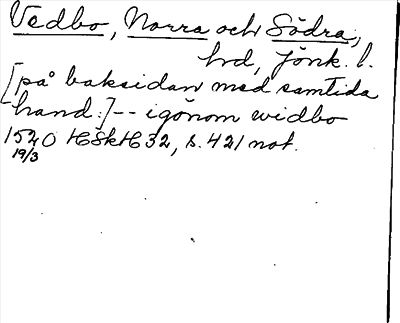 Vedbo, Norra och Södra,
hd, Jönk. l.
[på baksidan med samtida
hand:] -- igönom widbo
1520 HSkH 32, s. 421 not.
19/3